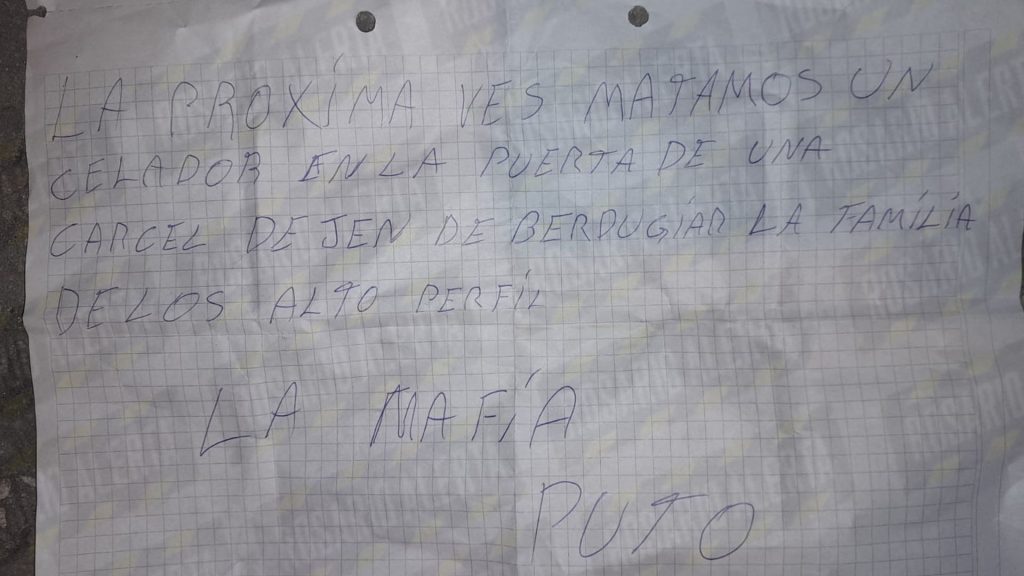 LA PROXÍMA VES MATAMOS UN
CELADOR EN LA PUERTA DE UNA
CARCEL DE JEN DE BERDUGÍAR LA FAMÍLÍA
DE LOS ALTO PERFÍL
LA MAFÍA
PUTO